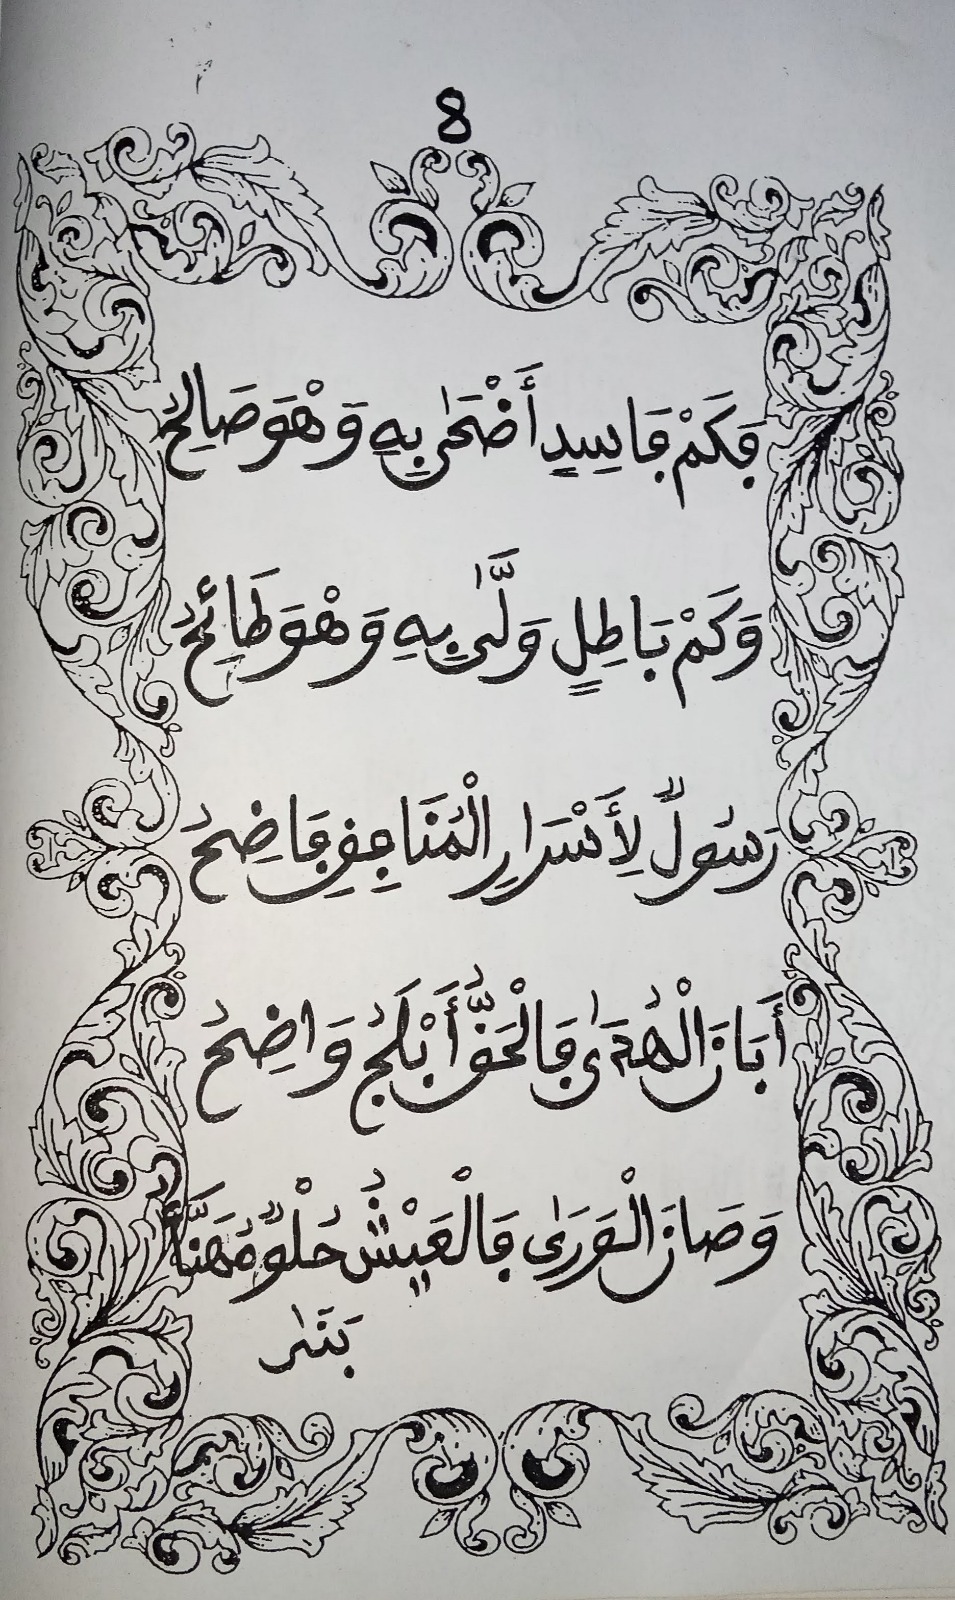 8
فَكَمْ فَاسِدٍ أَضْحَىٰ بِهِ وَهْوَ صَالِحُ
وَكَمْ بَاطِلٍ وَلَّىٰ بِهِ وَهْوَ طَائِحُ
رَسُولٌ لِأَسْرَارِ الْمُنَافِقِ فَاضِحُ
أَبَانَ الْهُدَىٰ فَالْحَقُّ أَبْلَجُ وَاضِحُ
وَصَانَ الْقُرَىٰ فَالْعَيْشُ حُلْوٌ مُهَنَّأُ
بَتَرٰ